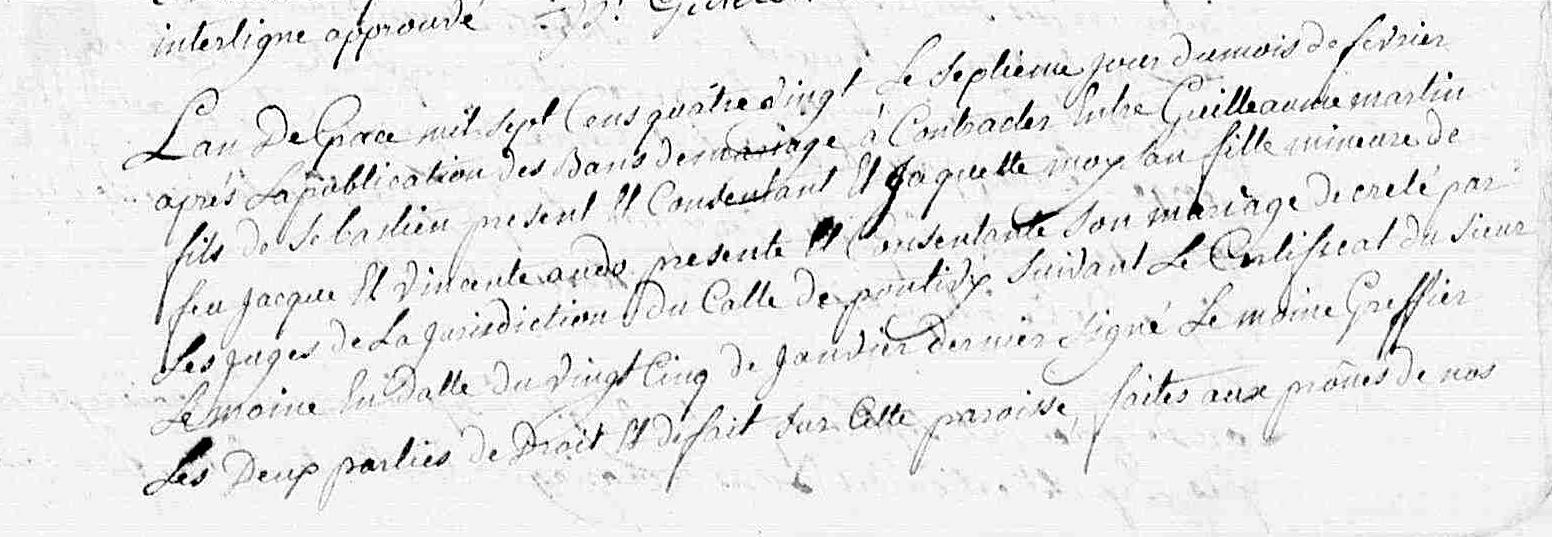 interligne approuvé
L'an De Grace mil sept Cens quatre vingt Le Septieme jour du mois de fevrier
aprés La publication des Bans de mariage à Contracter Entre Guilleaume martin
fils de Sebastien present Et Consentant Et Jaquette moxan fille mineure de
feu Jacque Et vincente audo presente Et Consentante Son mariage decreté par
Les juges de La Jurisdiction du Calle de pontivy Suivant Le Certificat du Sieur
Le moine En datte du vingt Cinq de Janvier dernier signé Le moine Greffier
Les Deux parties de Droit Et de fait sur Cette paroisse, faites aux prônes de nos